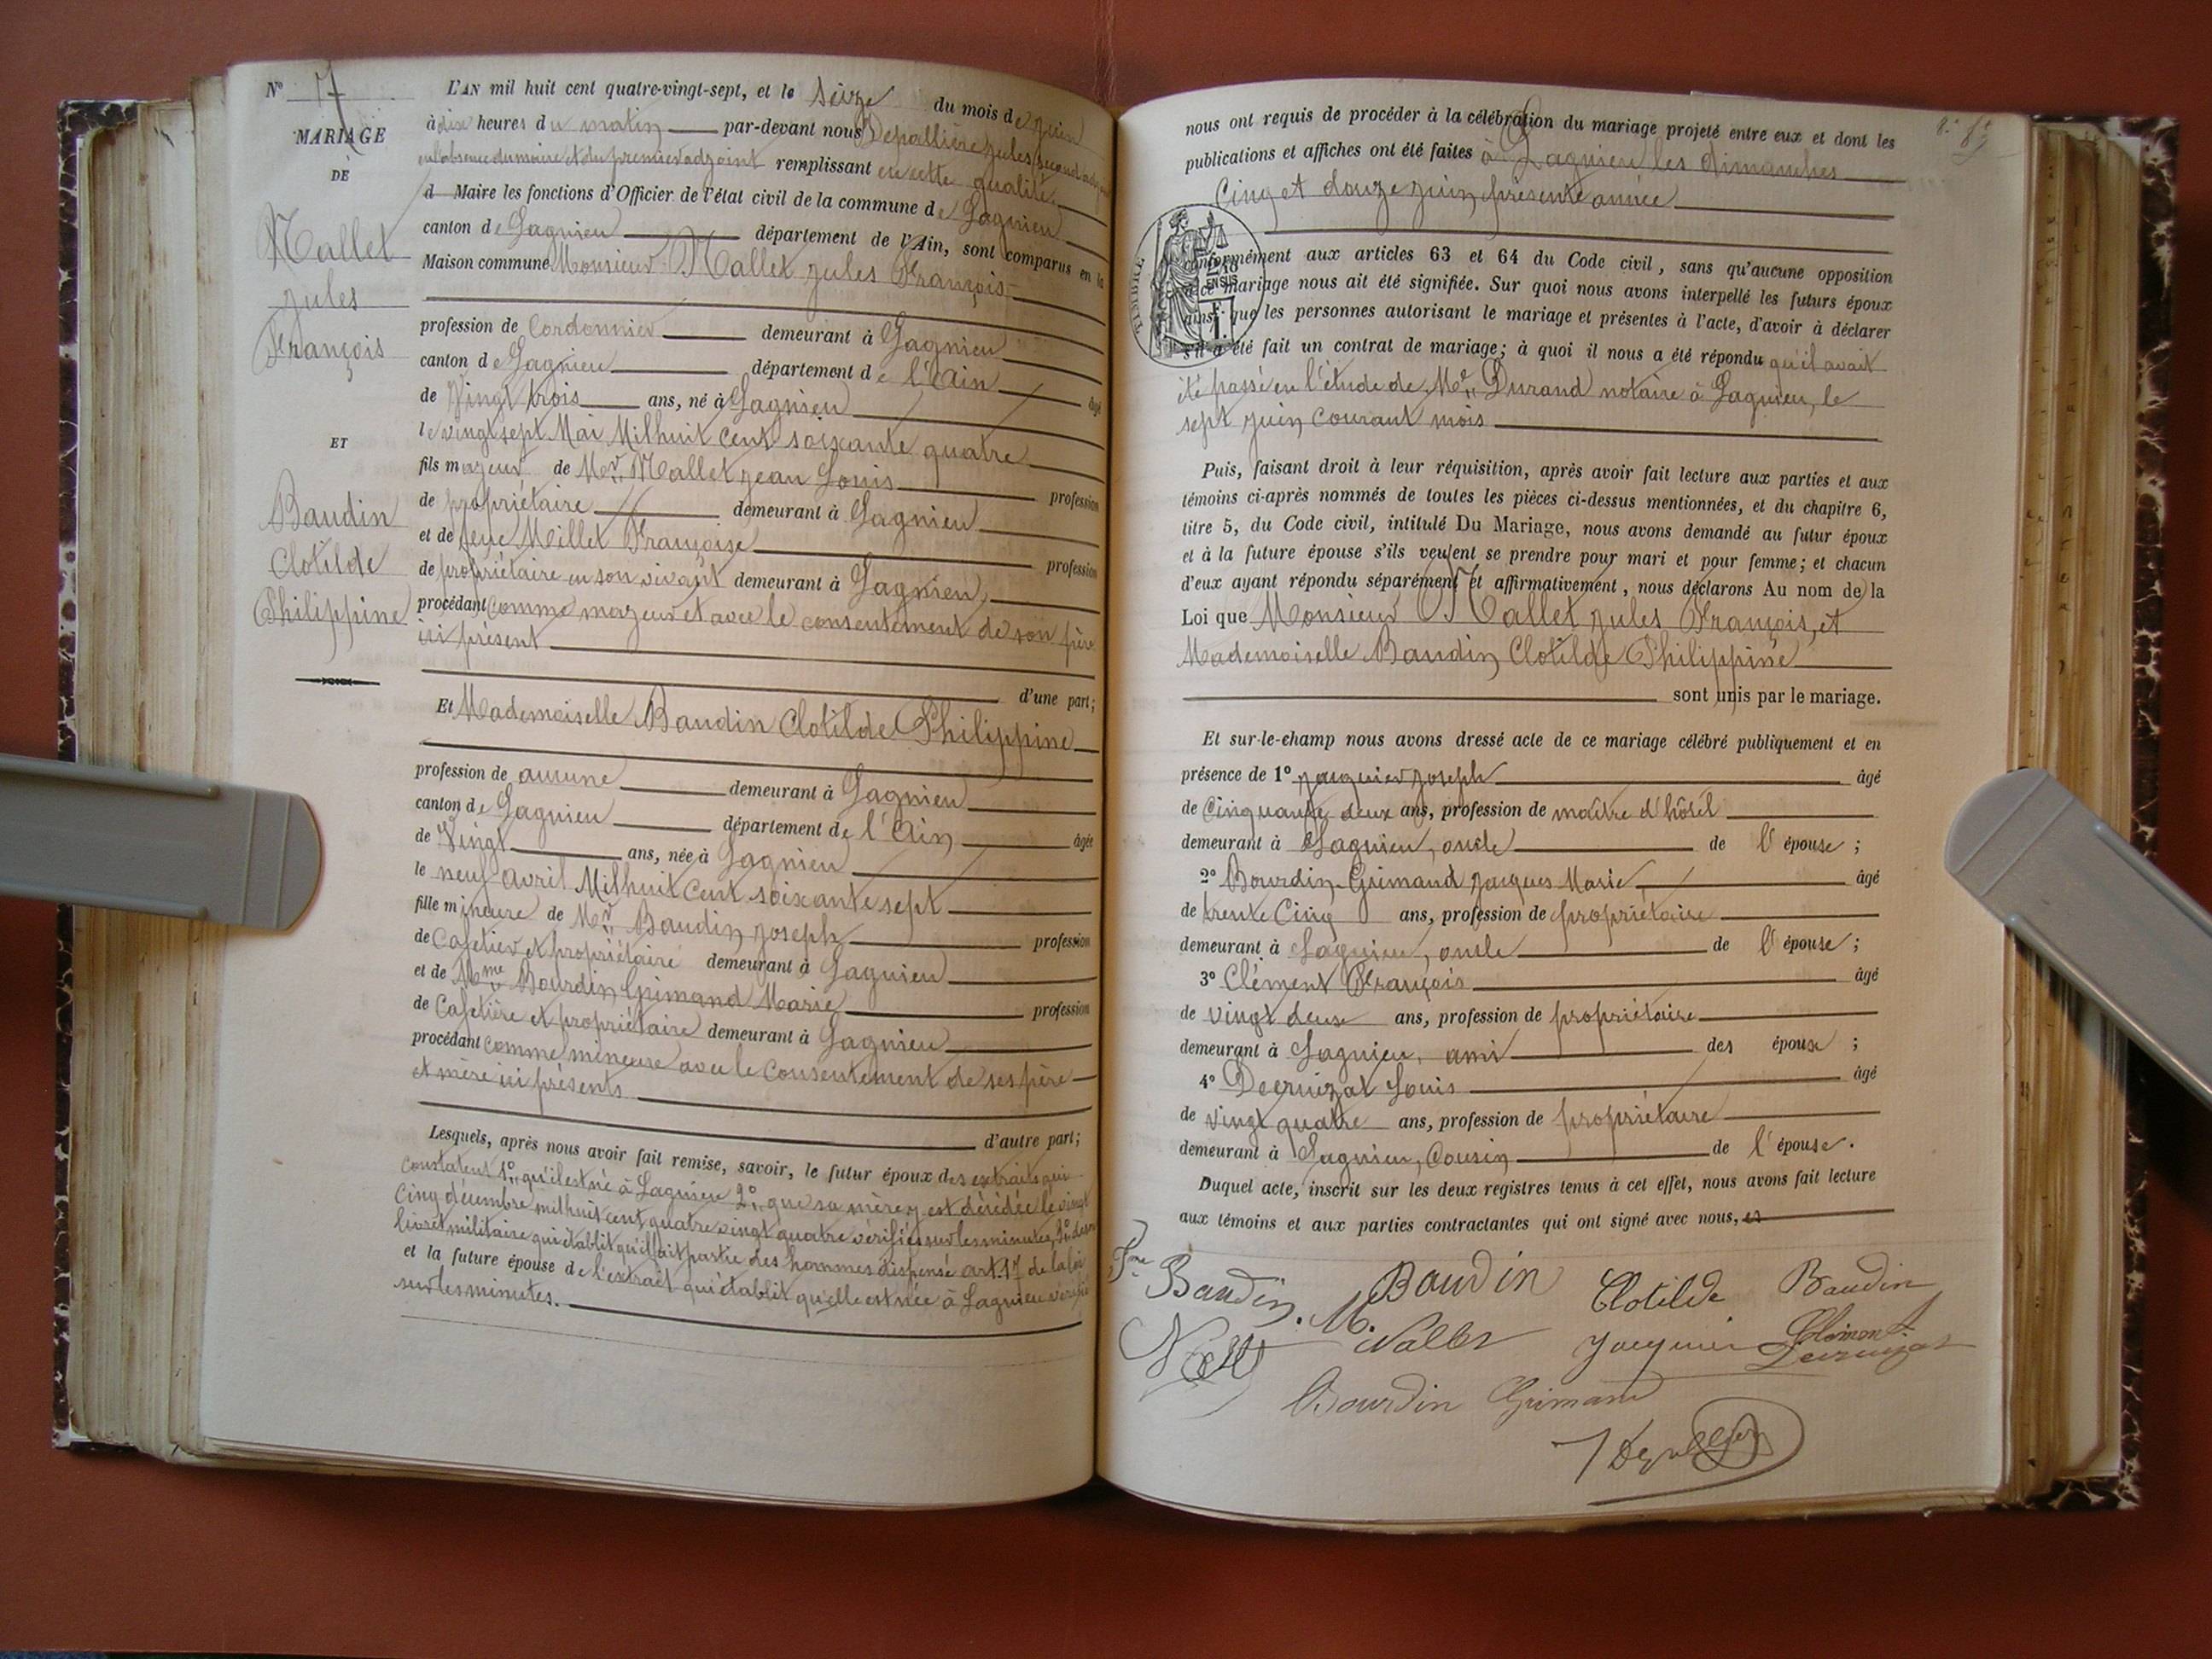 N° 17
MARIAGE
DE
Nallet
Jules
François
ET
Baudin
Clotilde
Philippine
L'AN mil huit cent quatre-vingt-sept, et le Seize du mois de juin
à dix heures du matin par-devant nous Depallière Jules second adjoint
en l'absence du maire et du premier adjoint remplissant en cette qualité
d Maire les fonctions d'Officier de l'état civil de la commune de Lagnieu
canton de Lagnieu département de l'Ain, sont comparus en la
Maison commune Monsieur Nallet Jules François
profession de Cordonnier demeurant à Lagnieu
canton de Lagnieu département de l'Ain âgé
de Vingt trois ans, né à Lagnieu
le vingt sept Mai Mil huit cent soixante quatre
fils majeur de Mr Nallet Jean Louis profession
de propriétaire demeurant à Lagnieu
et de feue Millet Françoise profession
de propriétaire en son vivant demeurant à Lagnieu,
procédant comme majeur et avec le consentement de son père
ici présent
d'une part;
Et Mademoiselle Baudin Clotilde Philippine
profession de aucune demeurant à Lagnieu
canton de Lagnieu département de l'Ain âgée
de Vingt ans, née à Lagnieu
le neuf avril Mil huit Cent soixante sept
fille mineure de Mr Baudin Joseph profession
de Cafetier et propriétaire demeurant à Lagnieu
et de Mme Bourdin Grimand Marie profession
de Cafetière et propriétaire demeurant à Lagnieu
procédant comme mineure avec le consentement de ses père
et mère ici présents
d'autre part;
Lesquels, après nous avoir fait remise, savoir, le futur époux des extraits qui
constatent 1° qu'il est né à Lagnieu 2° que sa mère y est décédée le vingt
Cinq décembre mil huit cent quatre vingt quatre vérifiés sur les minutes, 3° de son
livret militaire qui établit qu'il fait partie des hommes dispensé art. 17 de la loi
et la future épouse de l'extrait qui établit qu'elle est née à Lagnieu vérifié
sur les minutes.
nous ont requis de procéder à la célébration du mariage projeté entre eux et dont les
publications et affiches ont été faites à Lagnieu les dimanches
Cinq et douze juin présente année
conformément aux articles 63 et 64 du Code civil, sans qu'aucune opposition
à ce mariage nous ait été signifiée. Sur quoi nous avons interpellé les futurs époux
ainsi que les personnes autorisant le mariage et présentes à l'acte, d'avoir à déclarer
s'il a été fait un contrat de mariage; à quoi il nous a été répondu qu'il avait
été passé en l'étude de Me Durand notaire à Lagnieu, le
sept juin courant mois
Puis, faisant droit à leur réquisition, après avoir fait lecture aux parties et aux
témoins ci-après nommés de toutes les pièces ci-dessus mentionnées, et du chapitre 6,
titre 5, du Code civil, intitulé Du Mariage, nous avons demandé au futur époux
et à la future épouse s'ils veulent se prendre pour mari et pour femme; et chacun
d'eux ayant répondu séparément et affirmativement, nous déclarons Au nom de la
Loi que Monsieur Nallet Jules François, et
Mademoiselle Baudin Clotilde Philippine
sont unis par le mariage.
Et sur-le-champ nous avons dressé acte de ce mariage célébré publiquement et en
présence de 1° Jacquier Joseph âgé
de Cinquante deux ans, profession de maître d'hôtel
demeurant à Lagnieu, oncle de l'épouse;
2° Bourdin-Grimand Jacques Marie âgé
de trente Cinq ans, profession de propriétaire
demeurant à Lagnieu, oncle de l'épouse;
3° Clément François âgé
de vingt deux ans, profession de propriétaire
demeurant à Lagnieu, ami des époux;
4° Decruizat Louis âgé
de vingt quatre ans, profession de propriétaire
demeurant à Lagnieu, Cousin de l'épouse.
Duquel acte, inscrit sur les deux registres tenus à cet effet, nous avons fait lecture
aux témoins et aux parties contractantes qui ont signé avec nous,
Fme Baudin. M. Baudin Clotilde Baudin
Nallet Jacquier Clément
Decruizat
Bourdin Grimand